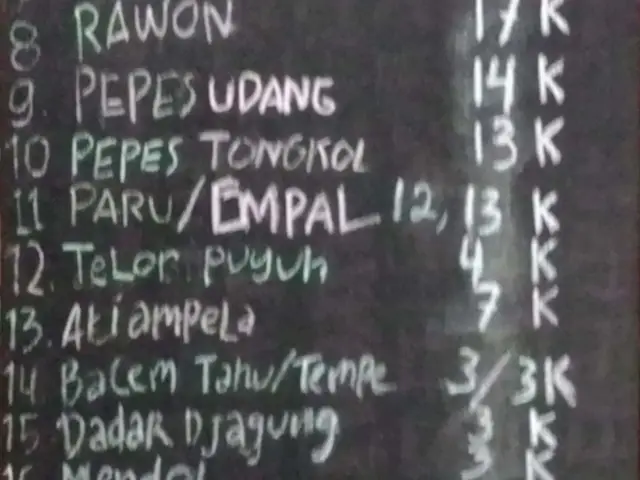 8 RAWON 17 K
9. PEPES UDANG 14 K
10 PEPES TONGKOL 13 K
11 PARU/EMPAL 12, 13 K
12. TeLor puyuh 4 K
13. Ati ampeLa 7 K
14 Bacem Tahu/Tempe 3/3K
15 Dadar Djagung 3 K
16 Mendol 3 K